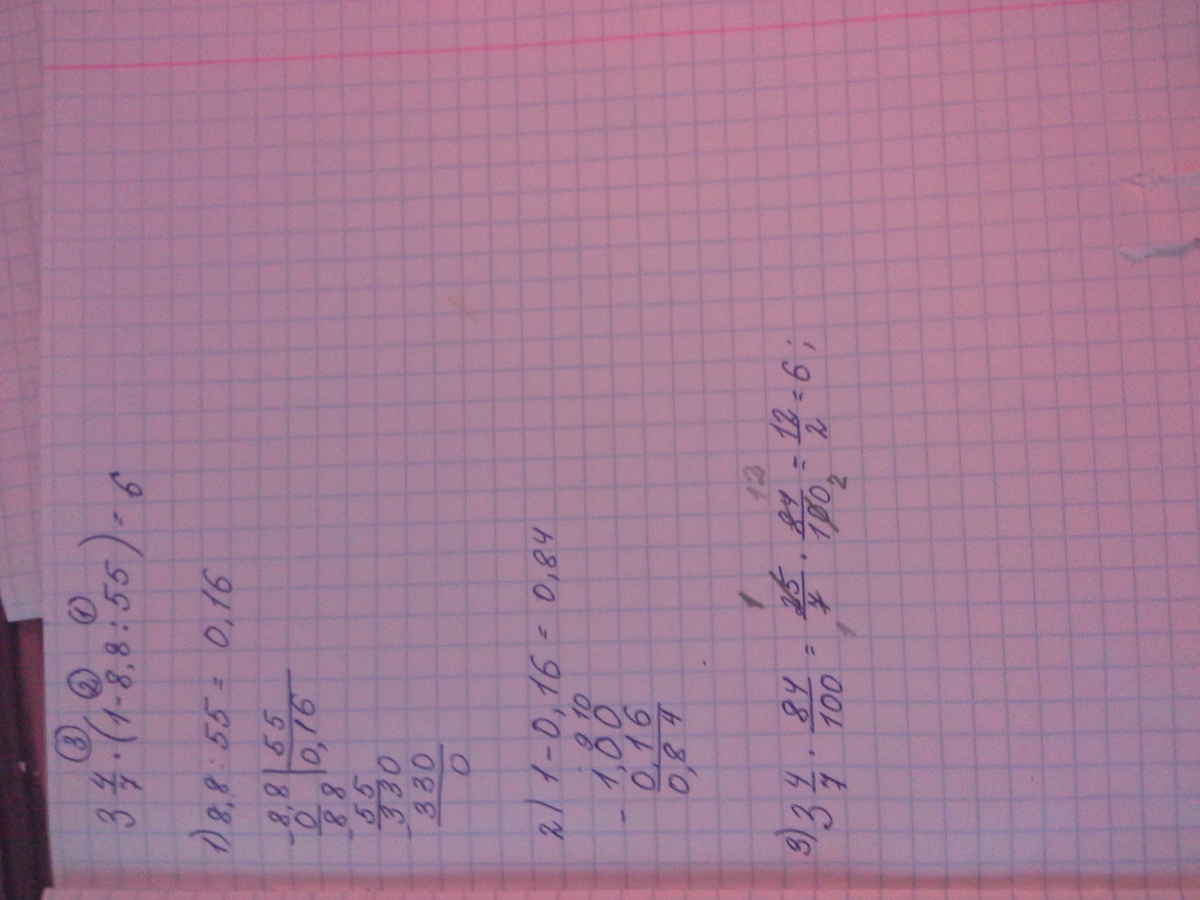 ③ ② ①
3 4/7 · (1 - 8,8 : 55) = 6
1) 8,8 : 55 = 0,16
-8,8 | 55
0 | 0,16
-88
55
-330
330
0
2) 1 - 0,16 = 0,84
. 9 10
- 1,00
0,16
0,84
3) 3 4/7 · 84/100 = 25/7 · 84/100 = 12/2 = 6 ;
1 12
1 2